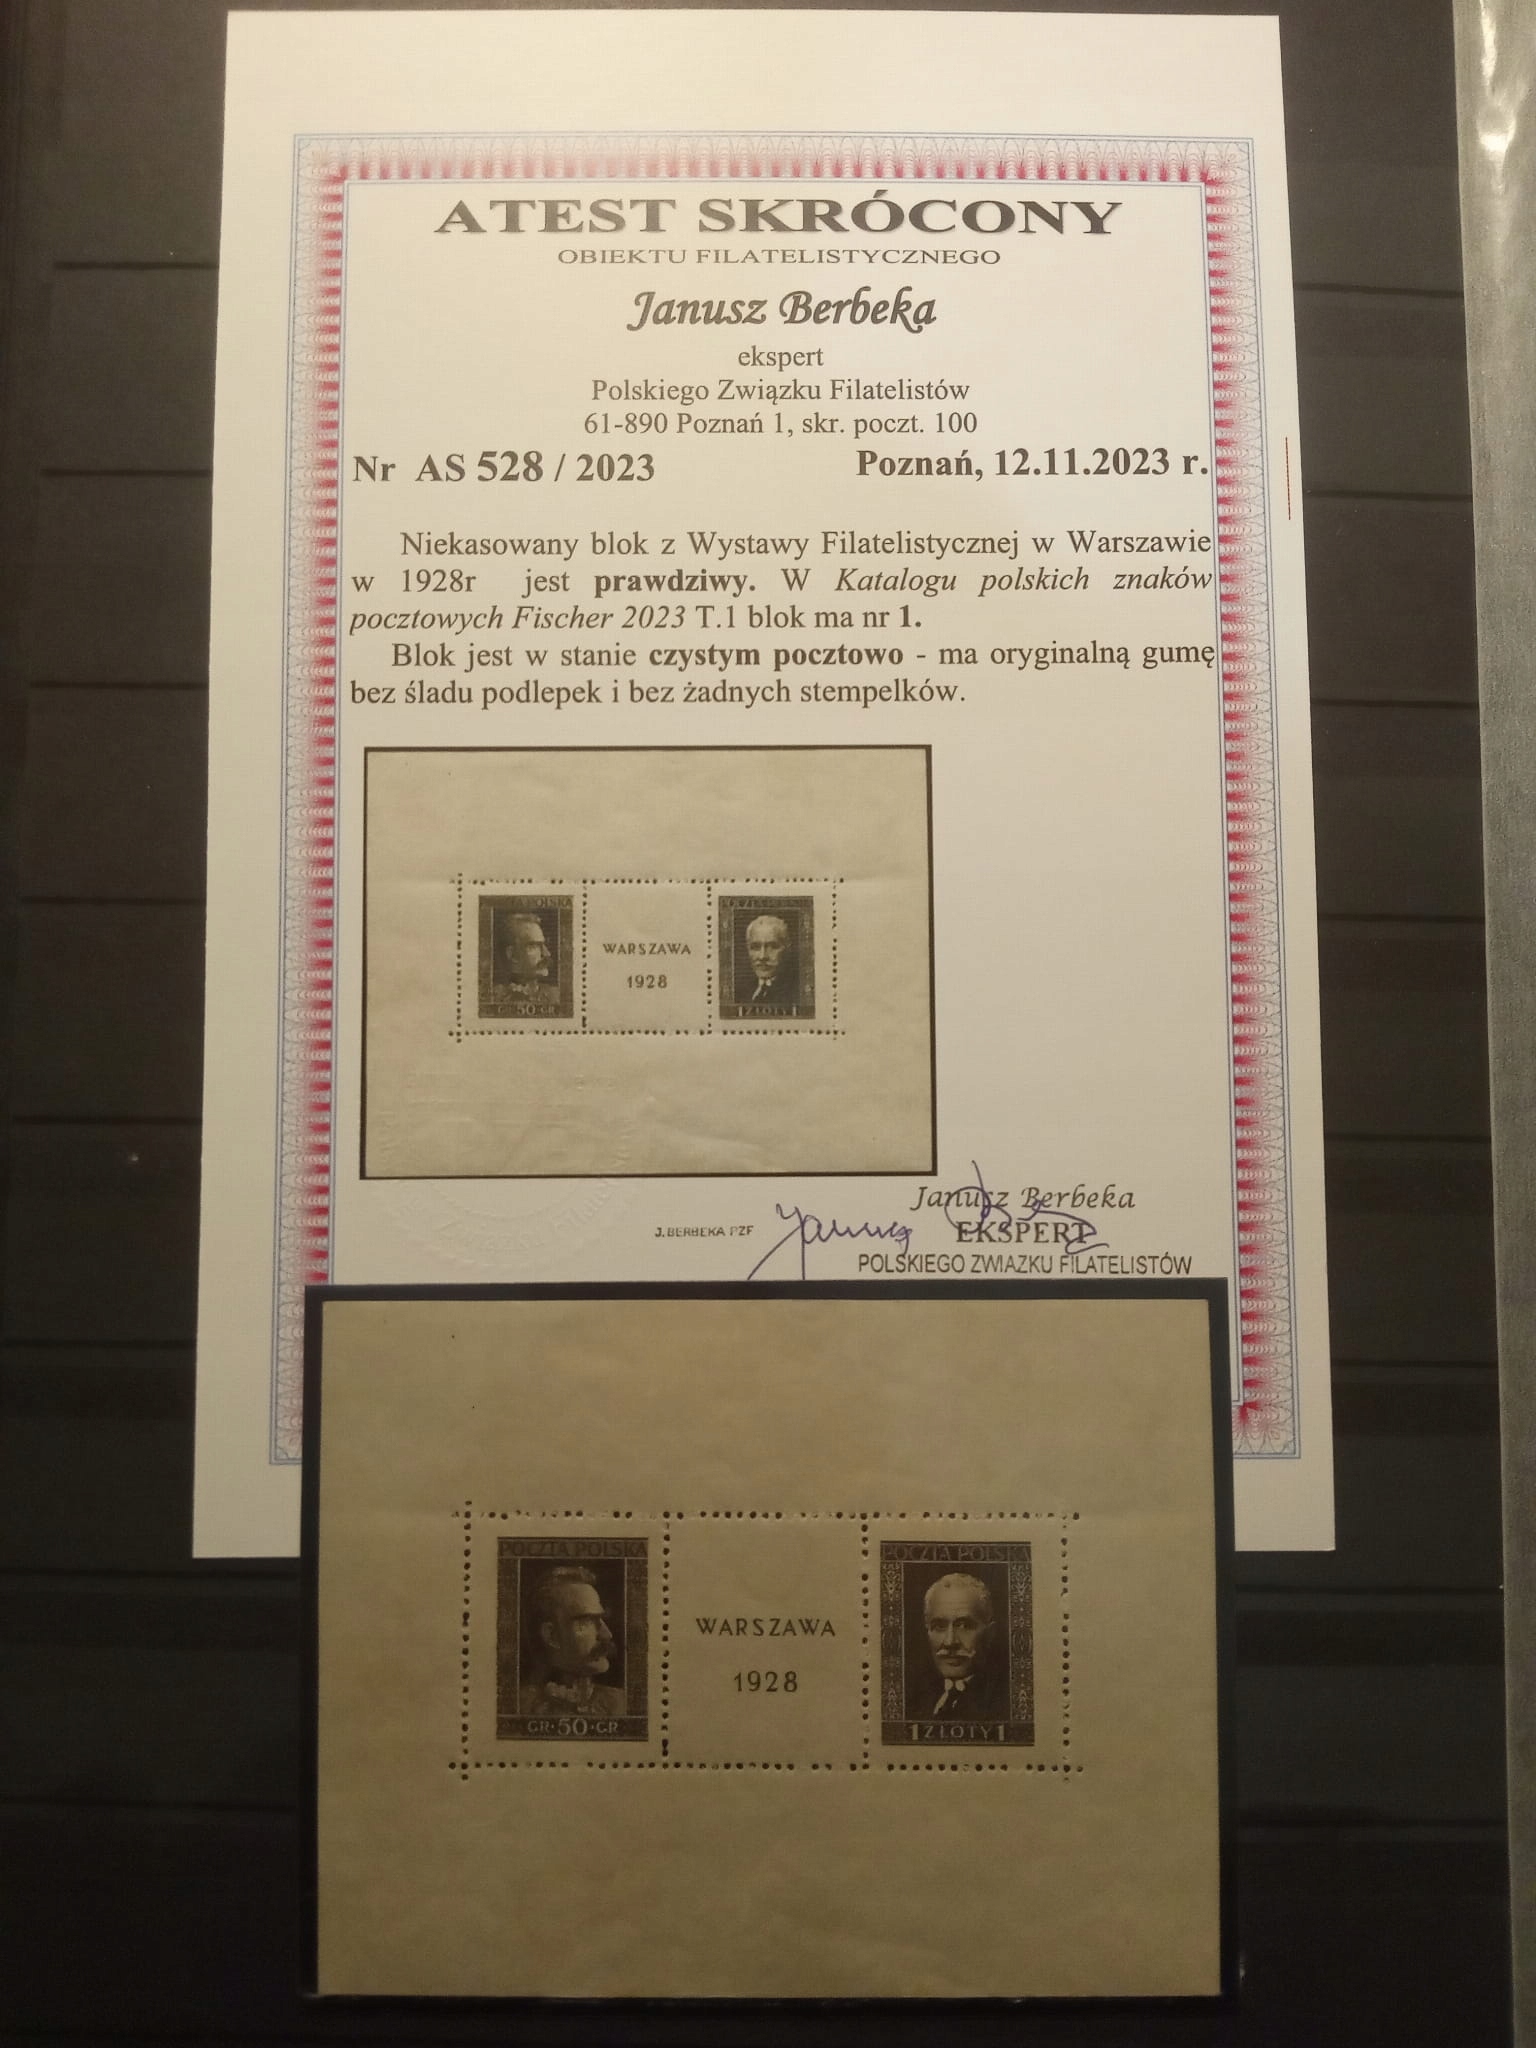 ATEST SKRÓCONY
OBIEKTU FILATELISTYCZNEGO
Janusz Berbeka
ekspert
Polskiego Związku Filatelistów
61-890 Poznań 1, skr. poczt. 100
Nr AS 528 / 2023 Poznań, 12.11.2023 r.
Niekasowany blok z Wystawy Filatelistycznej w Warszawie
w 1928r jest prawdziwy. W Katalogu polskich znaków
pocztowych Fischer 2023 T.1 blok ma nr 1.
Blok jest w stanie czystym pocztowo - ma oryginalną gumę
bez śladu podlepek i bez żadnych stempelków.
POCZTA POLSKA POCZTA POLSKA
WARSZAWA
1928
GR·50·GR 1 ZŁOTY 1
Janusz Berbeka
J. BERBEKA PZF EKSPERT
POLSKIEGO ZWIAZKU FILATELISTÓW
POCZTA POLSKA POCZTA POLSKA
WARSZAWA
1928
GR·50·GR 1 ZŁOTY 1